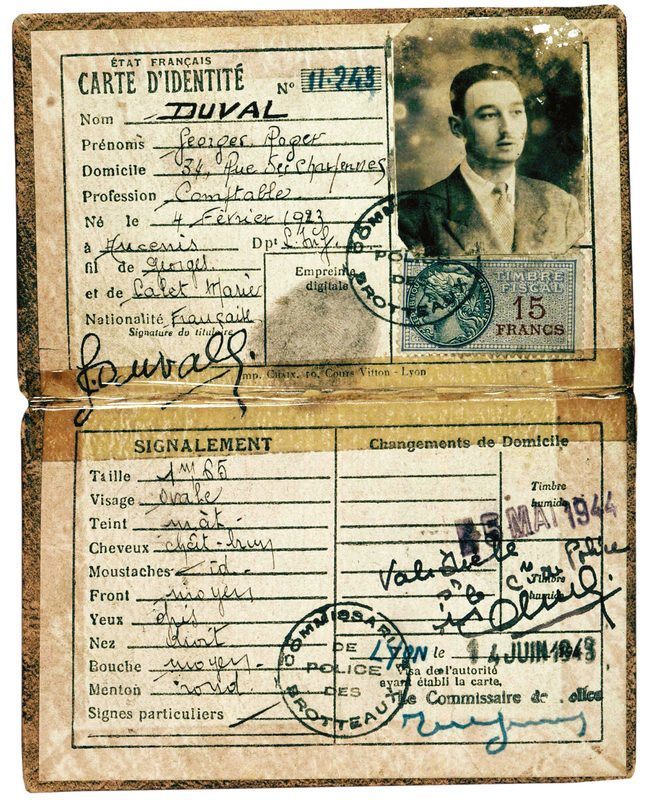 ÉTAT FRANÇAIS
CARTE D'IDENTITÉ
N° 11.248
Nom DUVAL
Prénoms Georges, Roger
Domicile 34, Rue des Charpennes
Profession Comptable
Né le 4 Février 1923
à Ancenis Dpt L. Inf
fil de Georges
et de Marie
Nationalité Française
Signature du titulaire
Empreinte
digitale
COMM
POLICE
D
BROTTEAUX
TIMBRE
FISCAL
15
FRANCS
G. Duval
Imp. CHAIX, 10, Cours Vitton - Lyon
SIGNALEMENT
Taille 1m 65
Visage ovale
Teint mât
Cheveux chât-brun
Moustaches id
Front moyen
Yeux gris
Nez droit
Bouche moyen
Menton rond
Signes particuliers
Changements de Domicile
Timbre
humide
MAI 1944
Police
Timbre
humide
LYON le 14 JUIN 1943
Visa de l'autorité
ayant établi la carte,
Le Commissaire de Police
COMMISSARIAT
DE
POLICE
DES
BROTTEAUX